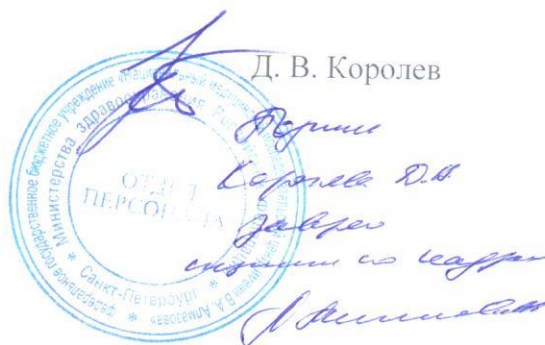 Д. В. Королев
Подпись
Королева Д.В.
заверяю
специалист по кадрам
федеральное государственное бюджетное учреждение «Национальный медицинский исследовательский центр имени В. А. Алмазова»
Министерства здравоохранения Российской Федерации
* Санкт-Петербург *
ОТДЕЛ
ПЕРСОНАЛА